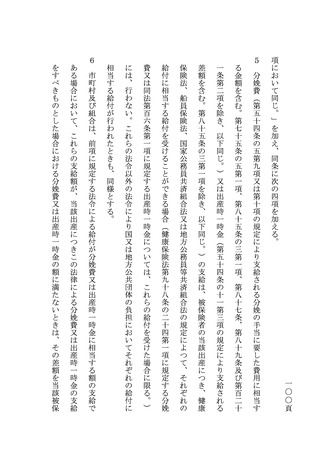 一〇〇頁
項において同じ。」を加え、同条に次の四項を加える。
5 分娩費（第五十四条の五第九項又は第十項の規定により支給される分娩の手当に要した費用に相当す
る金額を含む。第七十五条の五第一項、第八十五条の三第一項、第八十七条、第八十九条及び第百二十
一条第二項を除き、以下同じ。）又は出産時一時金（第五十四条の十一第三項の規定により支給される
差額を含む。第八十五条の三第一項を除き、以下同じ。）の支給は、被保険者の当該出産につき、健康
保険法、船員保険法、国家公務員共済組合法又は地方公務員等共済組合法の規定によつて、それぞれの
給付に相当する給付を受けることができる場合（健康保険法第九十八条の二十四第一項に規定する分娩
費又は同法第百六条第一項に規定する出産時一時金については、これらの給付を受けた場合に限る。）
には、行わない。これらの法令以外の法令により国又は地方公共団体の負担においてそれぞれの給付に
相当する給付が行われたときも、同様とする。
6 市町村及び組合は、前項に規定する法令による給付が分娩費又は出産時一時金に相当する額の支給で
ある場合において、これらの支給額が、当該出産につきこの法律による分娩費又は出産時一時金の支給
をすべきものとした場合における分娩費又は出産時一時金の額に満たないときは、その差額を当該被保